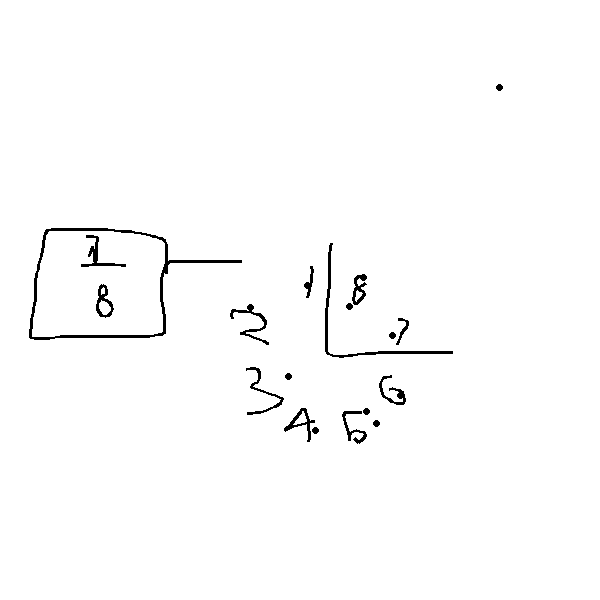 7
8
1
8
2
7
3
6
4 5